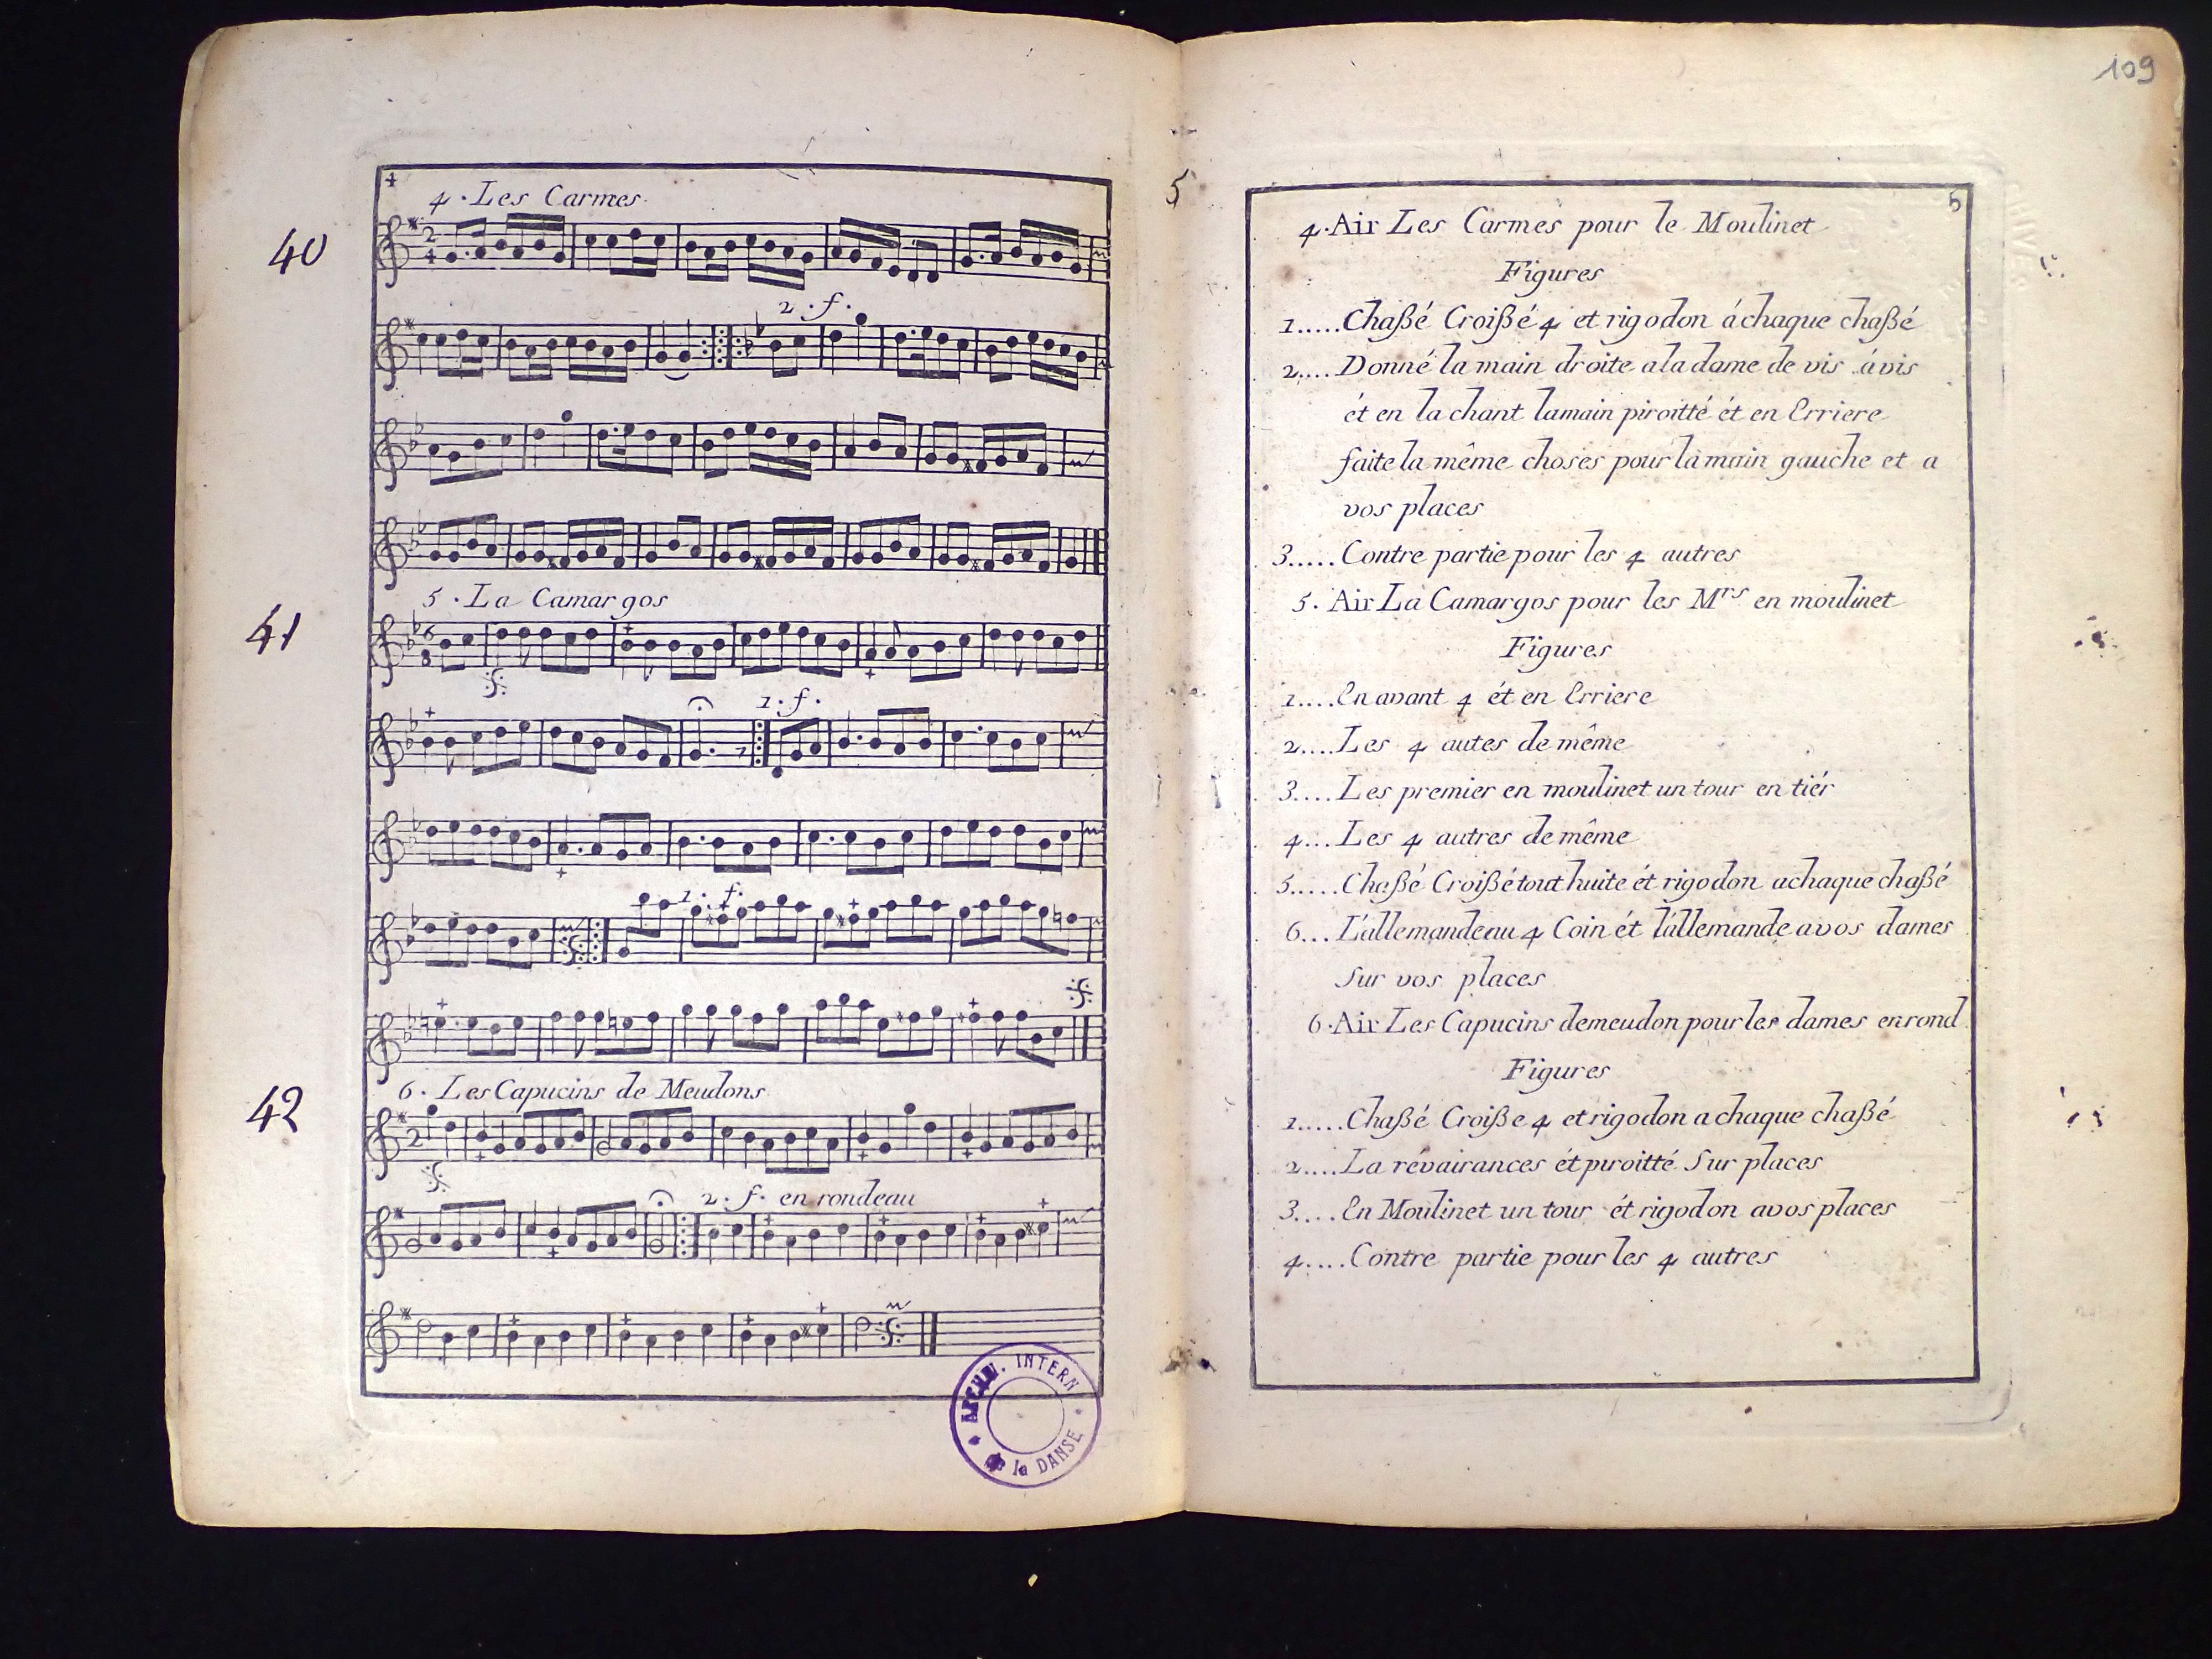 4
4 . Les Carmes.
40
2 . f .
5 . La Camargos
41
1 . f .
1 . f .
6 . Les Capucins de Meudons
42
2 . f . en rondeau
ARCHIV. INTERN
de la DANSE
5
109
5
4. Air Les Carmes pour le Moulinet
Figures
1.....Chaßé Croißé 4 et rigodon á chaque chaßé
2.... Donné la main droite a la dame de vis á vis
ét en la chant lamain piroitté ét en Erriere
faite la même choses pour la main gauche et a
vos places
3..... Contre partie pour les 4 autres
5. Air La Camargos pour les Mrs en moulinet
Figures
1....En avant 4 ét en Erriere
2....Les 4 autes de même
3....Les premier en moulinet un tour en tiér
4...Les 4 autres de même
5.....Chaßé Croißé tout huite ét rigodon a chaque chaßé
6... L'allemande au 4 Coin ét l'allemande a vos dames
Sur vos places
6. Air Les Capucins demeudon pour les dames en rond
Figures
1.....Chaßé Croiße 4 et rigodon a chaque chaßé
2....La révairances ét piroitté Sur places
3....En Moulinet un tour ét rigodon avos places
4....Contre partie pour les 4 autres